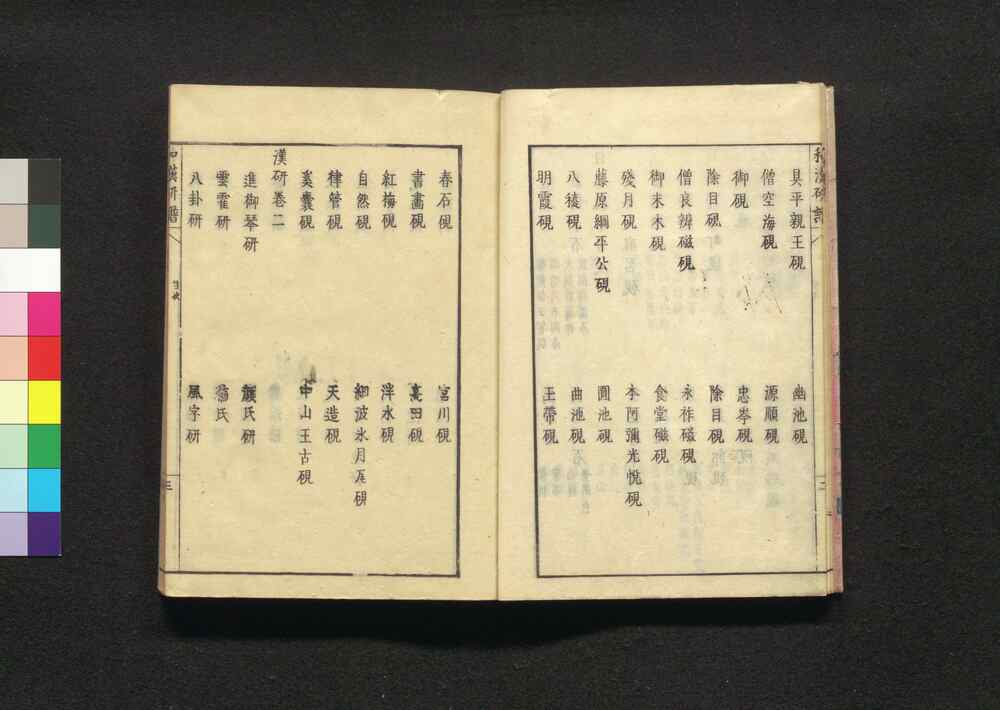 和漢研譜
具平親王硯
幽池硯
僧空海硯
源順硯
御硯
忠岑硯
除目硯
除目硯
僧良辨磁硯
永祚磁硯
御末木硯
食堂磁硯
殘月硯
本阿彌光悦硯
藤原綱平公硯
圓池硯
八稜硯
曲池硯
明霞硯
玉帶硯
二
春石硯
宮川硯
書畫硯
高田硯
紅梅硯
洋水硯
自然硯
細波氷月硯
律管硯
天造硯
奚囊硯
中山王古硯
漢研卷二
進御琴研
顏氏研
雲霍研
氏研
八卦研
風字研
和漢研譜
目次
三